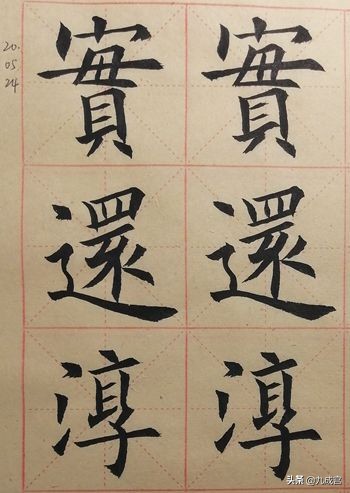 20.
05
24
實 實
還 還
淳 淳
头条 @九成宫